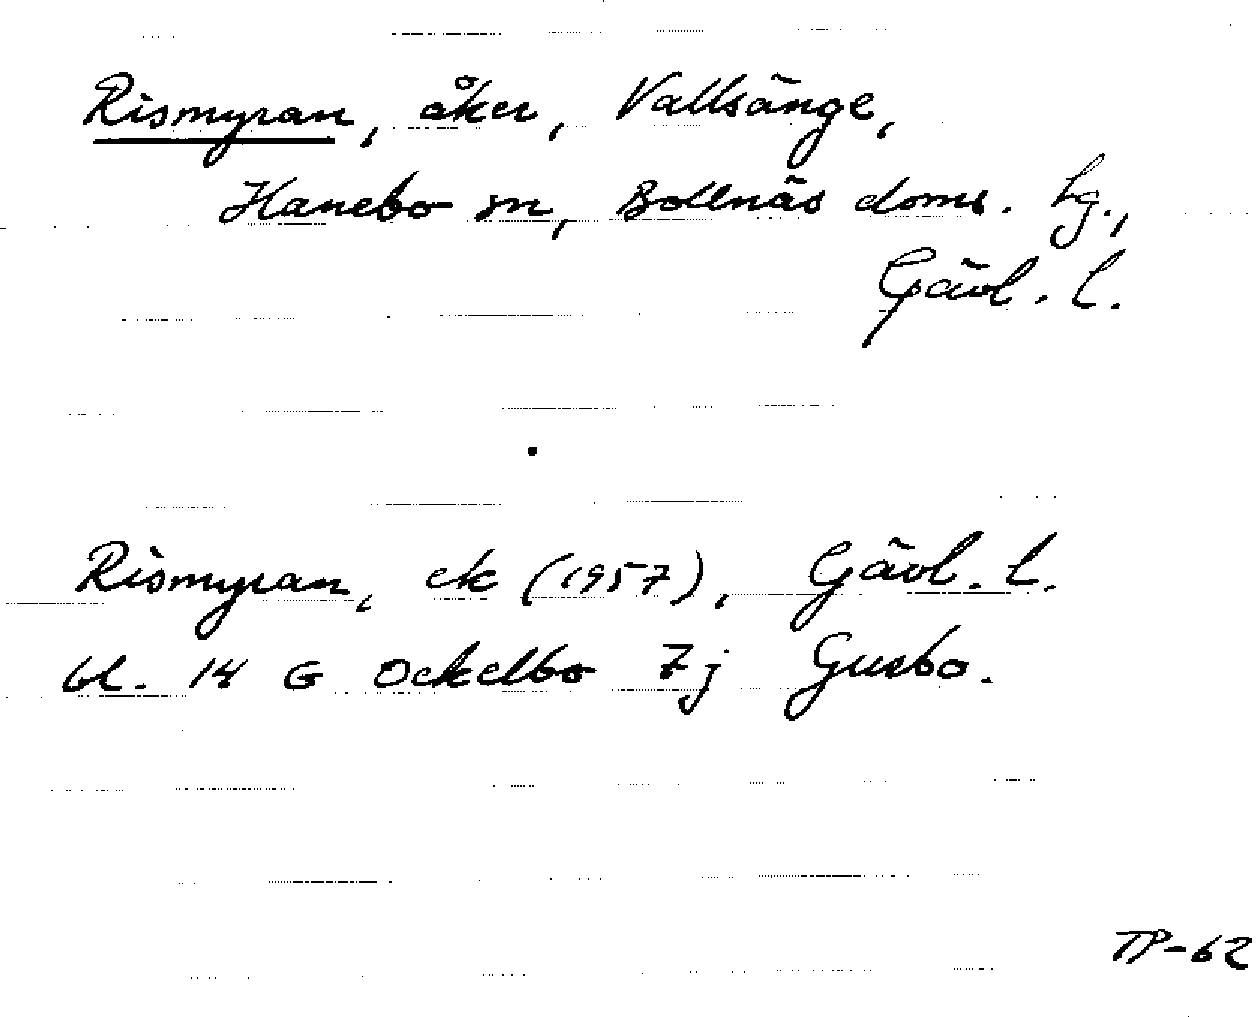 Rismyran, åker, Vallsänge,
Hanebo sn, Bollnäs doms. hg.,
Gävl. l.
Rismyran, ek (1957), Gävl. l.
bl. 14 G Ockelbo 7j Gusbo.
TP-62